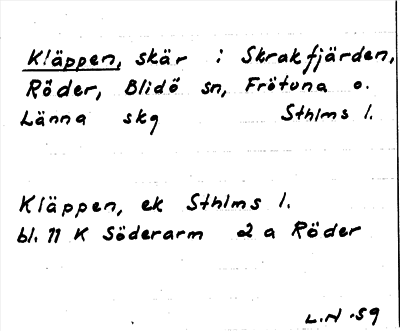 Kläppen, skär i Skrakfjärden,
Röder, Blidö sn, Frötuna o.
Länna skg Sthlms l.
Kläppen, ek Sthlms l.
bl. 11 K Söderarm 2 a Röder
L.N -59